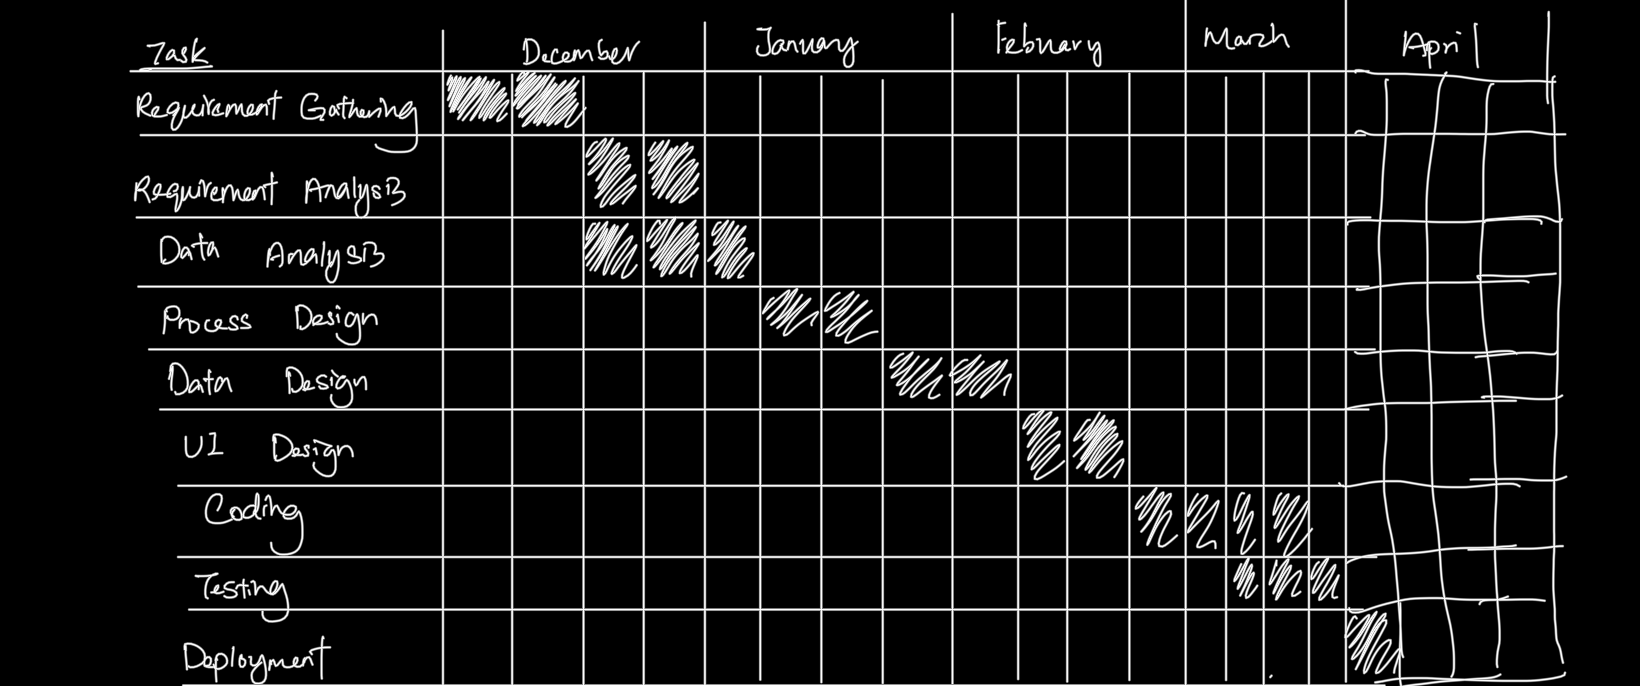 Task December January February March April
Requirement Gathering
Requirement Analysis
Data Analysis
Process Design
Data Design
UI Design
Coding
Testing
Deployment